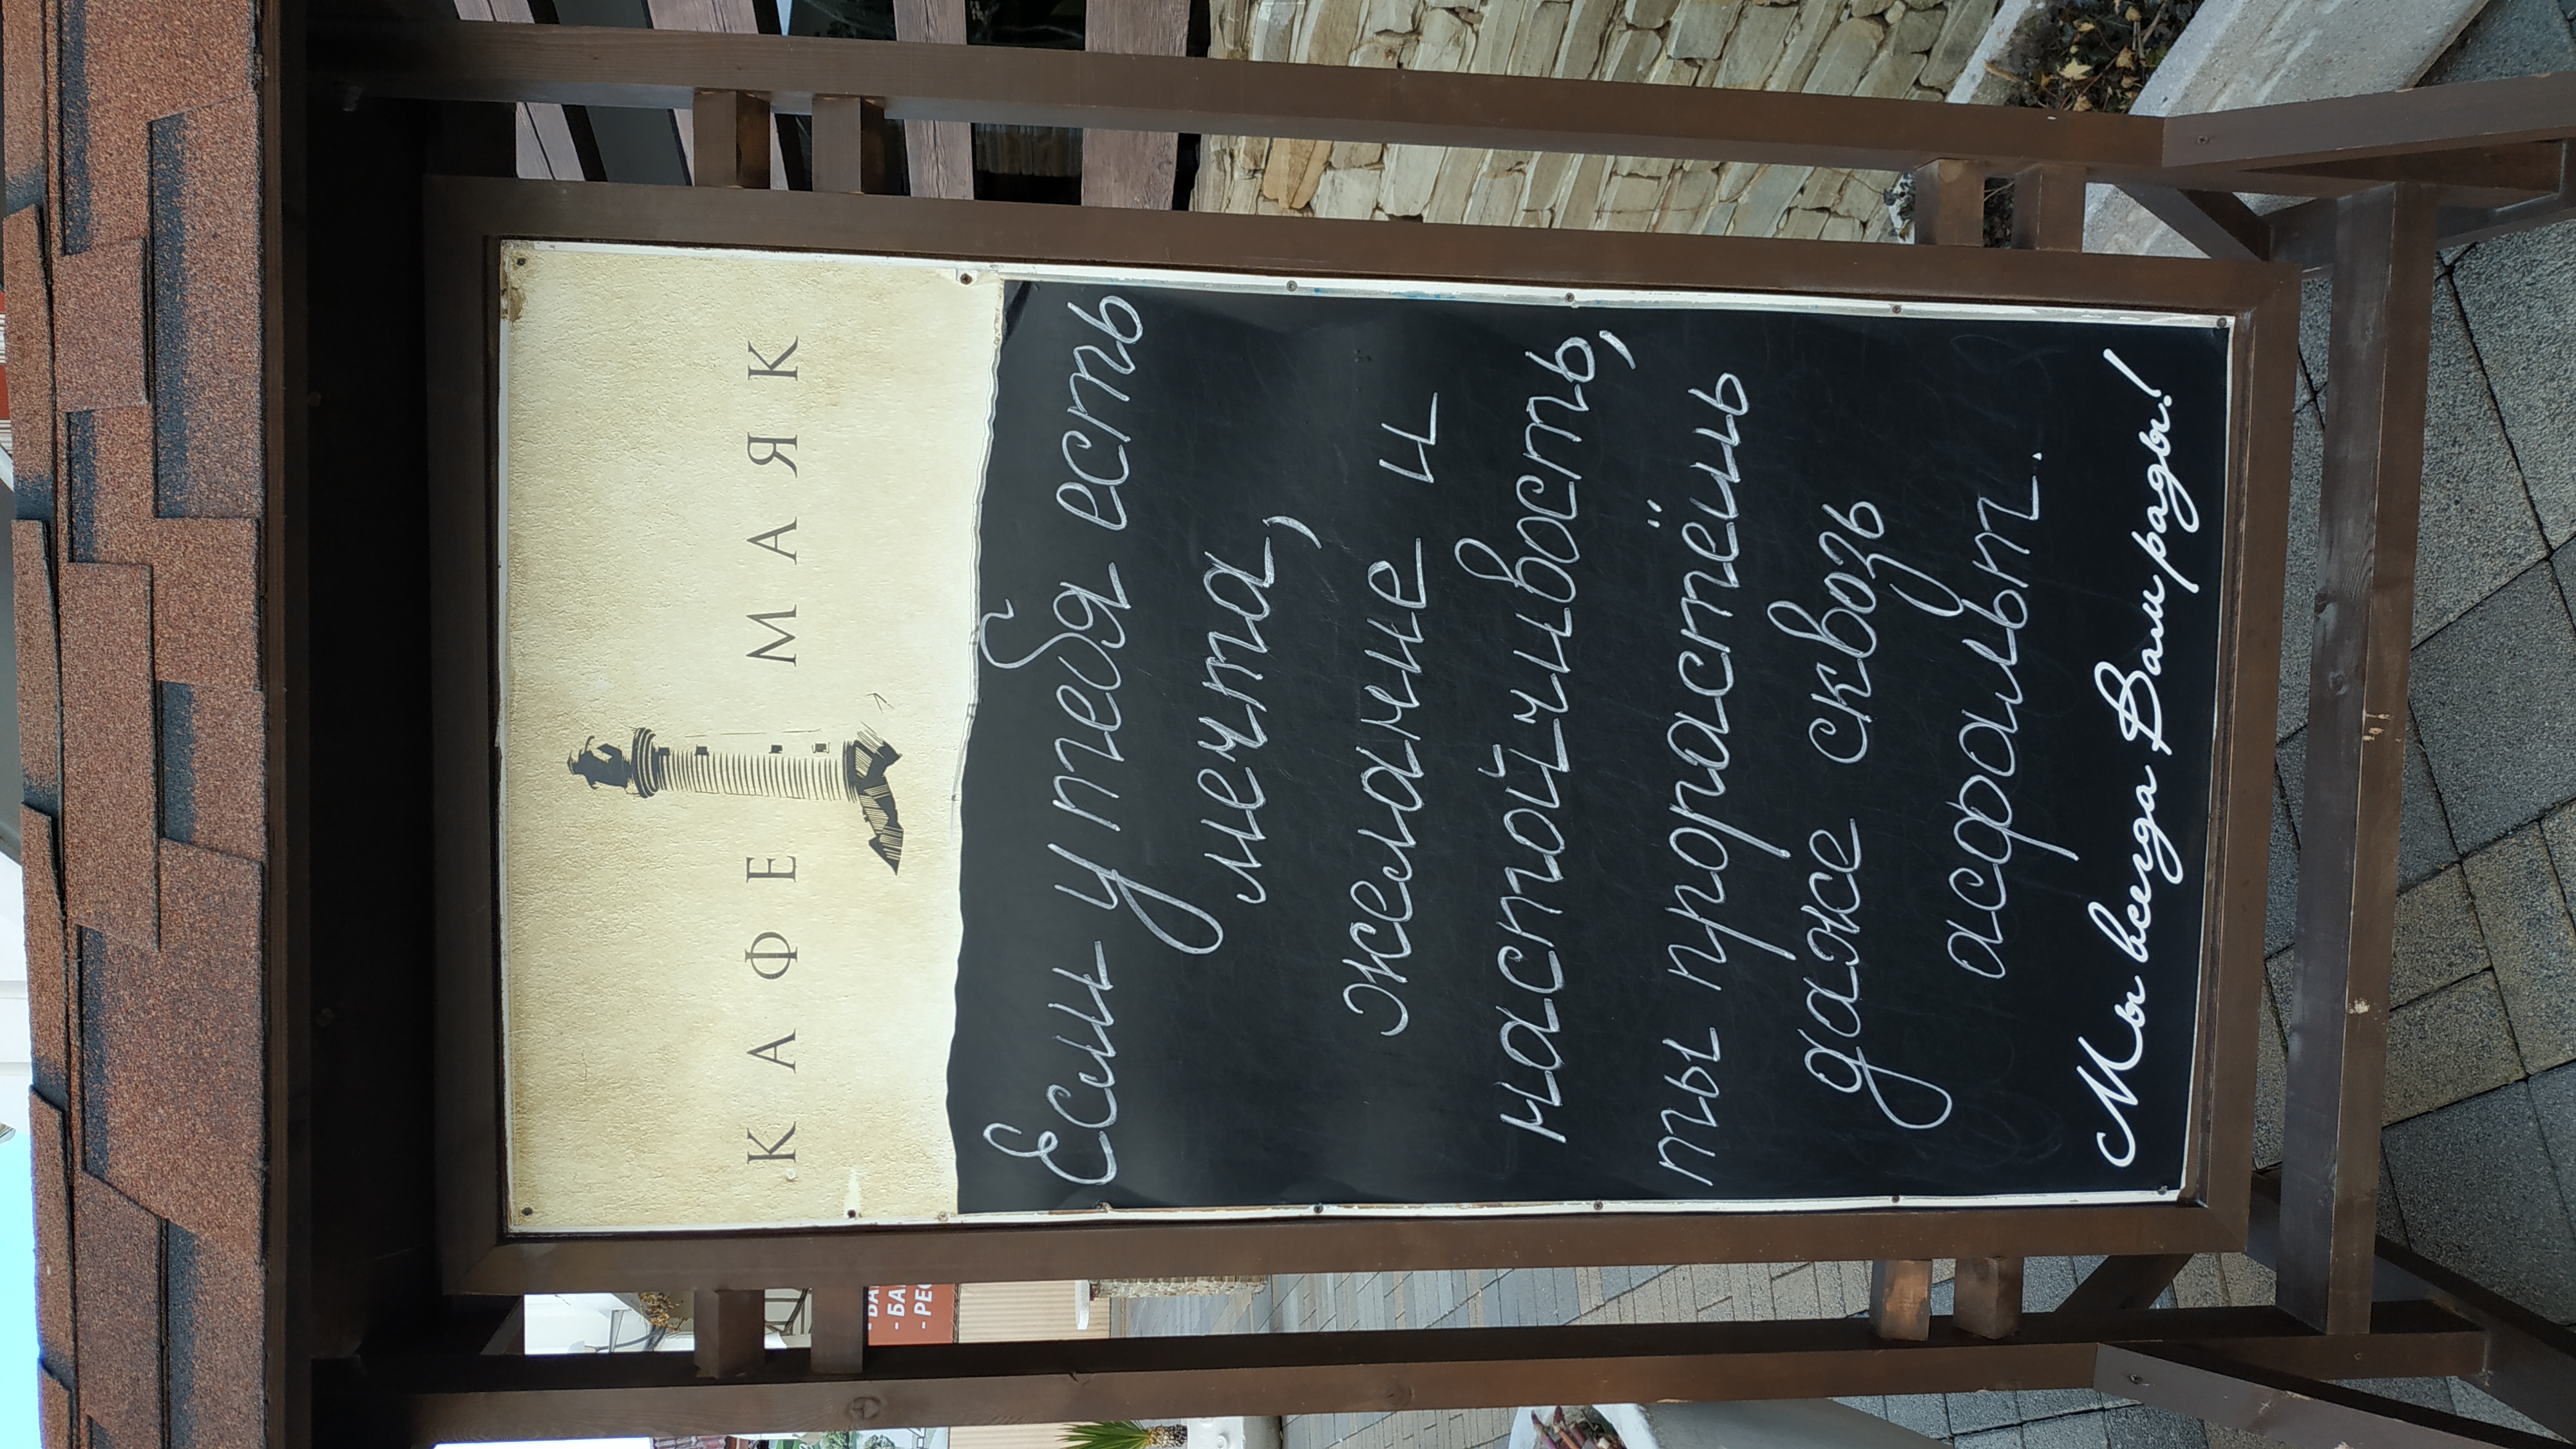 КАФЕ МАЯК
Если у тебя есть
мечта,
желание и
настойчивость,
ты прорастёшь
даже сквозь
асфальт.
Мы всегда Вам рады!